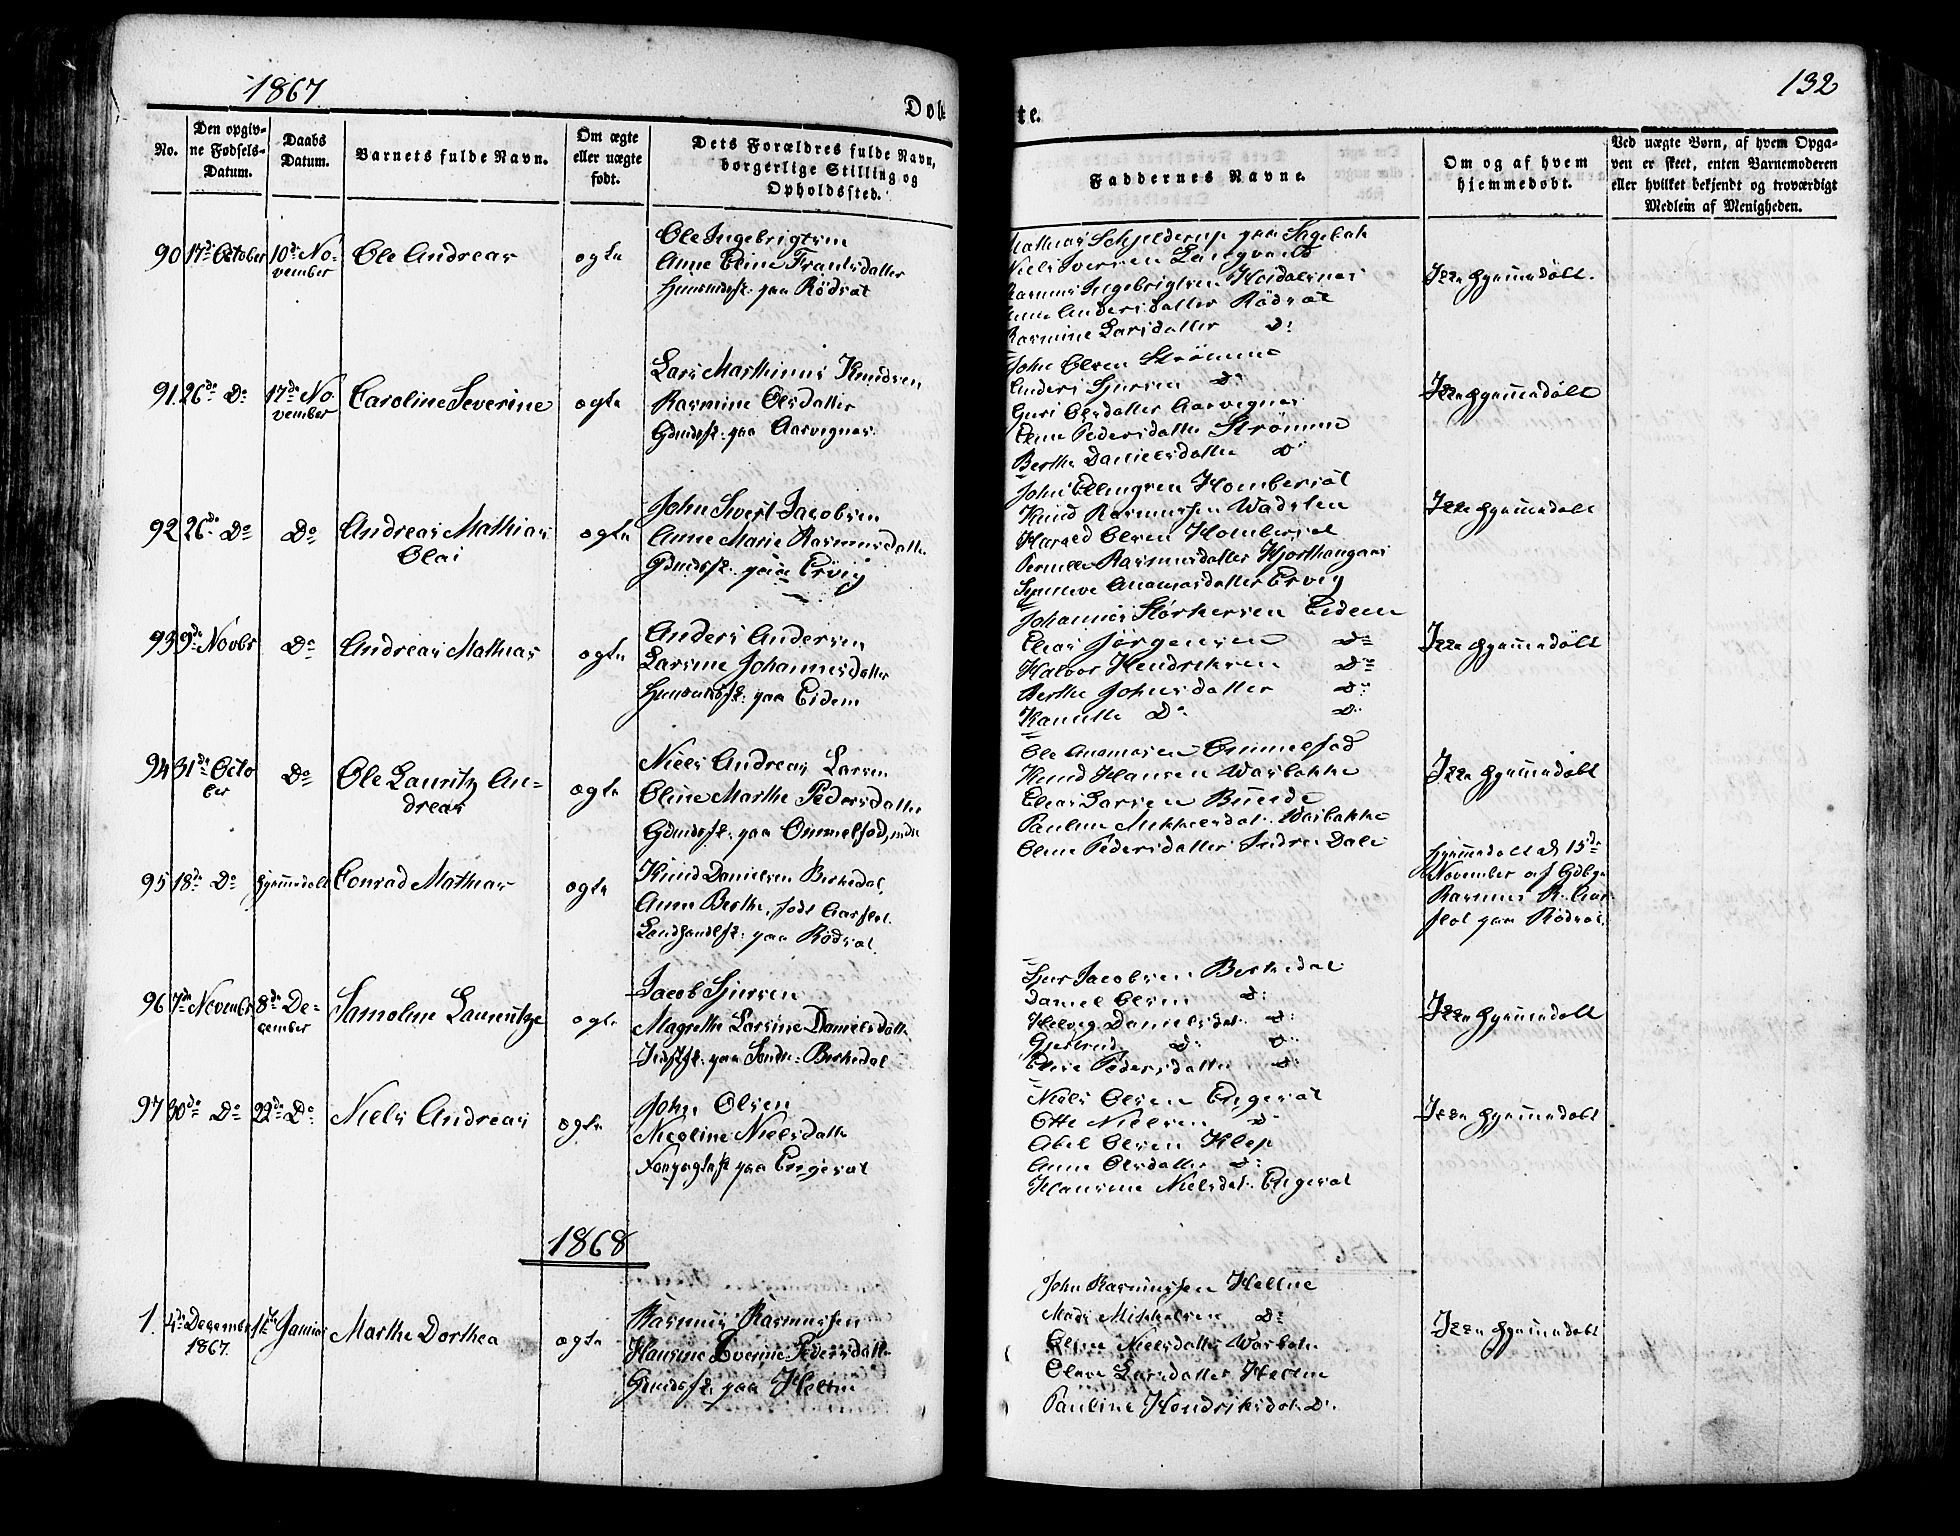 1867
132
Døb
te.
No.
Den opgiv-
ne Fødsels-
Datum.
Daabs
Datum.
Barnets fulde Navn.
Om ægte
eller uægte
født.
Dets Forældres fulde Navn,
borgerlige Stilling og
Opholdssted.
Faddernes Navne.
Om og af hvem
hjemmedøbt.
Ved uægte Børn, af hvem Opga-
ven er skeet, enten Barnemoderen
eller hvilket bekjendt og troværdigt
Medlem af Menigheden.
90 17de October 10de No-
vember
Ole Andreas
ægte
Ole Ingebrigtsen
Anne Eline Frantsdatter
Huusmdsf. paa Rødsæt
Mathias Schjelderup paa
Niels Iversen Langvald
Rasmus Ingebrigtsen
Anne Andersdatter Rødsæt
Rasmine Larsdatter Do
Ikke hjemmedøbt.
91. 26de Do 17de No
vember
Caroline Severine
ægte
Lars Marthinus Knudsen
Rasmine Olsdatter
Gdmdsf. paa Aarvegnes.
John Olsen Strømme
Anders Sjursen Do
Guri Olsdatter Aarvegnes
Pedersdatter Strømme
Berthe Danielsdatter Do
Ikke hjemmedøbt
92 26de Do Do
Andreas Mathias
Olai
ægte
John Sivert Jacobsen
Anne Marie Rasmusdatter
Gdmdsf. paa Ervig
John Ellingsen Homberset
Knud Rasmussen Wadsten
Harald Olsen Homberset
Pernille Rasmusdatter Hjorthaugaas
Synneve Ananiasdatter Ervig
Ikke hjemmedøbt
93 9de Novbr Do
Andreas Mathias
ægte
Anders Andersen
Larsine Johannesdatter
Huusmdsf. paa Eidem
Johannes Størkersen Eidem
Elias Jørgensen Do
Halvor Hendriksen Do
Berthe Johnsdatter Do
Kanutte Do Do
Ikke hjemmedøbt
94 31de Octo
ber
Do
Ole Lauritz An-
dreas
ægte
Niels Andreas Larsen
Oline Marthe Pedersdatter
Gdmdsf. paa Ommelfod, indre
Ole Ananiasen Ommelfod
Knud Hansen Wasbakke
Elias Larsen Bunde
Pauline Mikkelsdat. Wasbakke
Oline Pedersdatter Indre Dale
Ikke hjemmedøbt
95 18de Do hjemmedøbt
Conrad Mathias
ægte
Knud Danielsen Berkedal,
Anne Berthe, født Aarflot
Landhandlsf. paa Rødsæt
hjemmedøbt d 15de
November af Gdbgr
Rasmus R. Aar
flot paa Rødsæt.
96 7de Novembr 8de De-
cember
Samoline Lauritze
ægte
Jacob Sjursen
Magrethe Larsine Danielsdatt.
Indstsf. paa Søndre Berkedal
Sjur Jacobsen Berkedal
Daniel Olsen Do
Helvig Danielsdat. Do
Gjertrud Do Do
Eline Pedersdatter Do
Ikke hjemmedøbt
97 30de Do 22de Do
Niels Andreas
ægte
John Olsen
Nicoline Nielsdatt.
Forpagtsf. paa Engeset
Niels Olsen Engeset
Otte Nielsen Do
Abel Olsen Klep
Anne Olsdatter Do
Hansine Nielsdat. Engeset
Ikke hjemmedøbt
1868
1. 4de Decembr
1867.
1ste Januar
Marthe Dorthea
ægte
Rasmus Rasmussen
Hansine Everine Pedersdatt.
Gdmdsf. paa Heltne
John Rasmussen Heltne
Mads Mikkelsen Do
Eline Nielsdatter Wasbak.
Olave Larsdatter Heltne
Pauline Hendriksdat. Do
Ikke hjemmedøbt